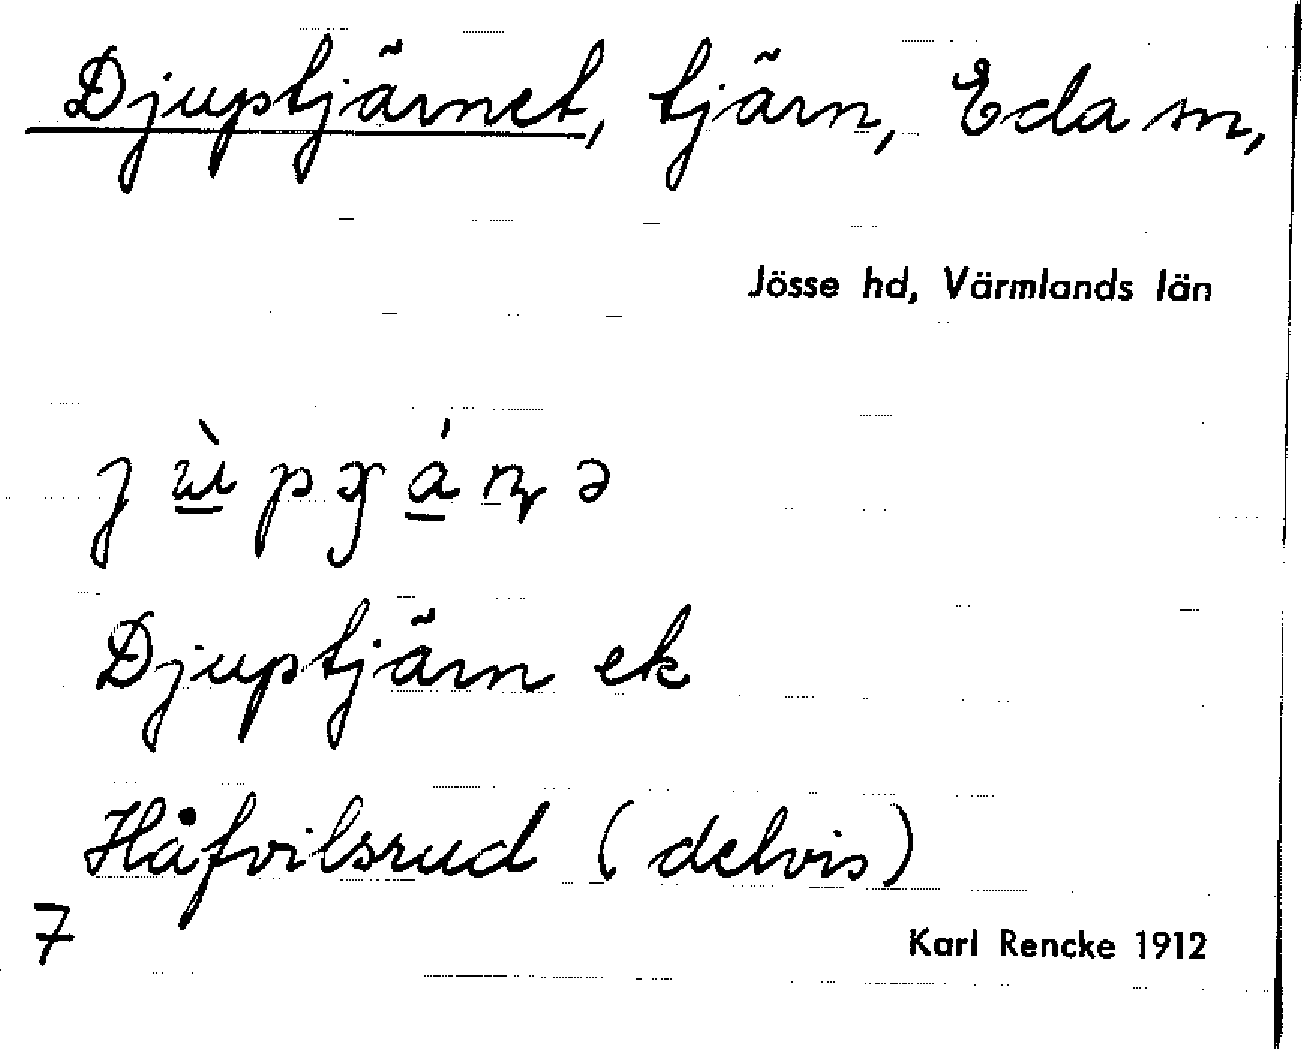 Djuptjärnet, tjärn, Eda sn,
Jösse hd, Värmlands län
Djuptjärn ek
Håfvilsrud (delvis)
7
Karl Rencke 1912